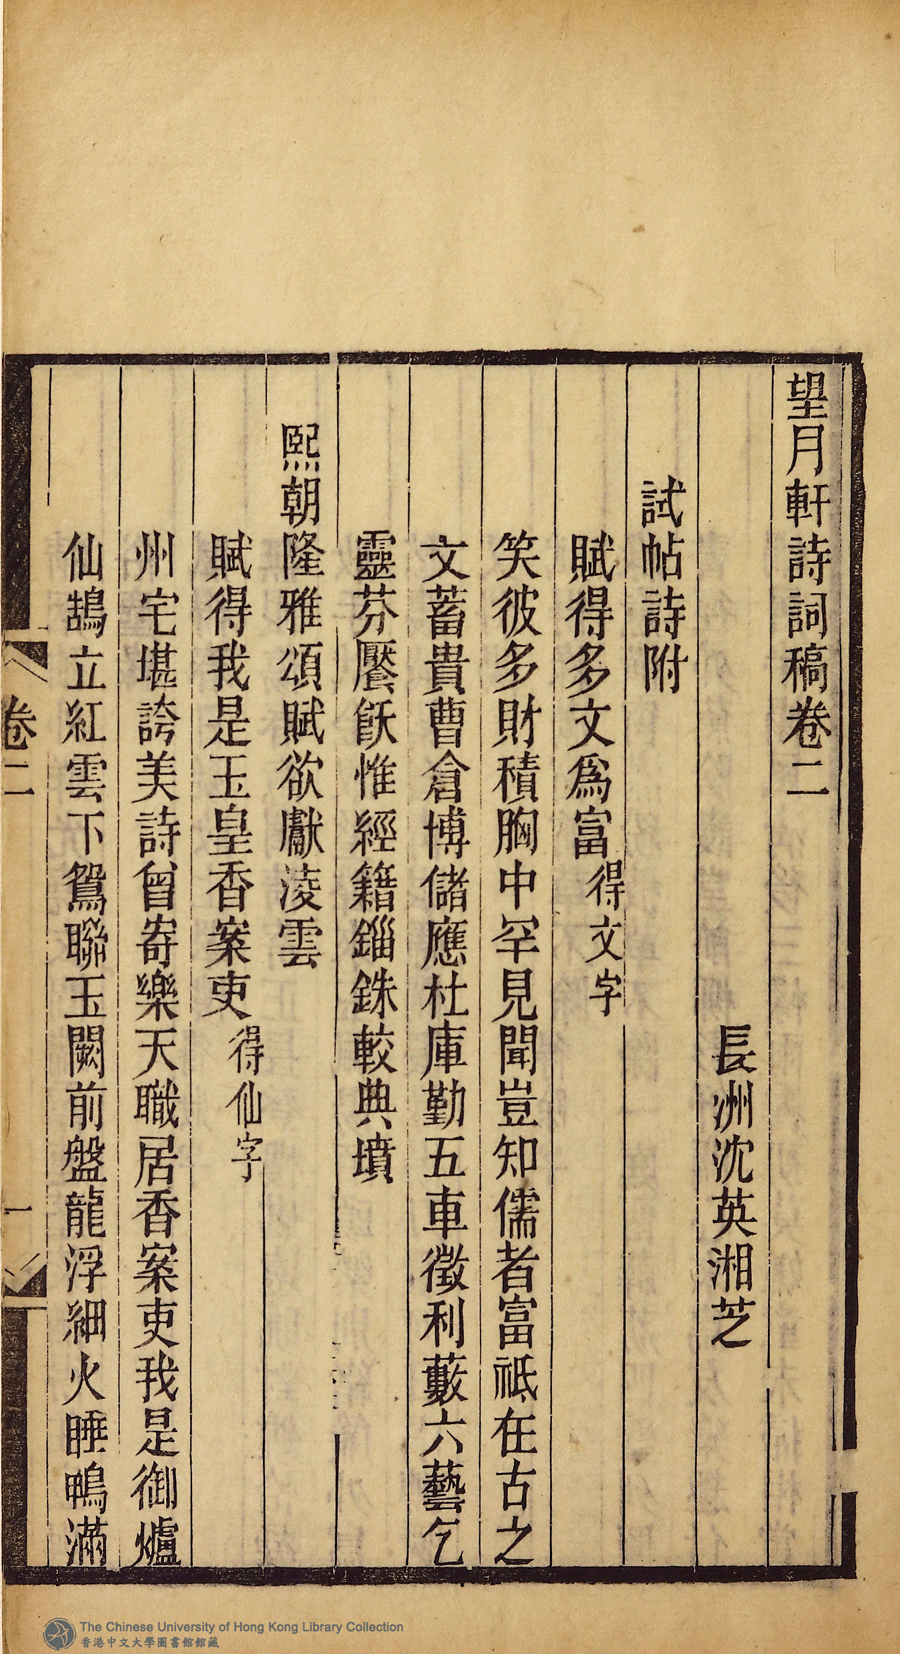 望月軒詩詞稿卷二
長洲沈英湘芝
試帖詩附
賦得多文爲富得文字
笑彼多財積胸中罕見聞豈知儒者富祗在古之
文蓄貴曹倉博儲應杜庫勤五車徵利藪六藝乞
靈芬饜飫惟經籍錙銖較典墳
熙朝隆雅頌賦欲獻淩雲
賦得我是玉皇香案吏得仙字
州宅堪誇美詩曾寄樂天職居香案吏我是御爐
仙鵠立紅雲下鴛聯玉闕前盤龍浮細火睡鴨滿
卷二
一
The Chinese University of Hong Kong Library Collection
香港中文大學圖書館館藏